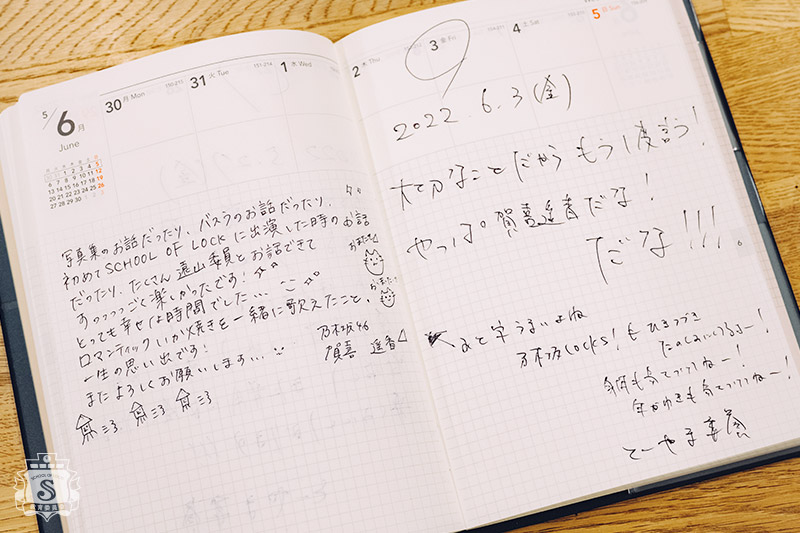 5/6月
June
30 月 Mon
31 火 Tue 151-214
1 水 Wed
2 木 Thu
3 金 Fri
4 土 Sat
5 日 Sun
6 7 8 9 10 11 12
13 14 15 16 17 18 19
20 21 22 23 24 25 26
27 28 29 30
写真集のお話だったり、バスラのお話だったり、
初めてSCHOOL OF LOCKに出演した時のお話
だったり、たくさん遠山委員とお話できて
すっっっっごく楽しかったです!
とっても幸せな時間でした…
ロマンティックいか焼きを一緒に歌えたこと、
一生の思い出です!
またよろしくお願いします…
乃木坂46
賀喜 遥香
2022.6.3(金)
大切なことだからもう1度言う!
やっぱ賀喜遥香だな!
だな!!!。
あと字うまいよね
乃木坂LOCKS!もひきつづき
たのしみにいるよー!
SCHOOL OF LOCK!
S